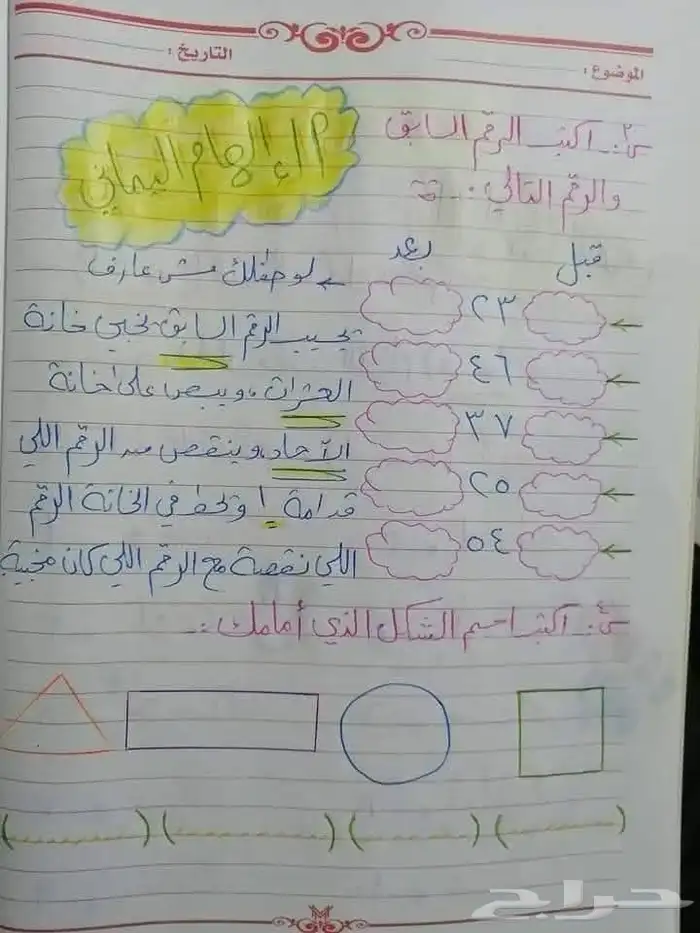 الموضوع :
التاريخ :
س٢:ـ اكتب الرقم السابق
والرقم التالي :ـ
م/ إلهام اليماني
قبل
بعد
← لو طفلك مش عارف
٢٣
يجيب الرقم السابق يخبي خانة
٤٦
العشرات ، ويبص على خانة
٣٧
الآحاد، وينقص من الرقم اللي
٢٥
قدامة ١ وتحط في الخانة الرقم
٥٤
اللي نقصة مع الرقم اللي كان مخبية
س٤:ـ اكتب اسم الشكل الذي أمامك :ـ
( ) ( ) ( ) ( )
حراج